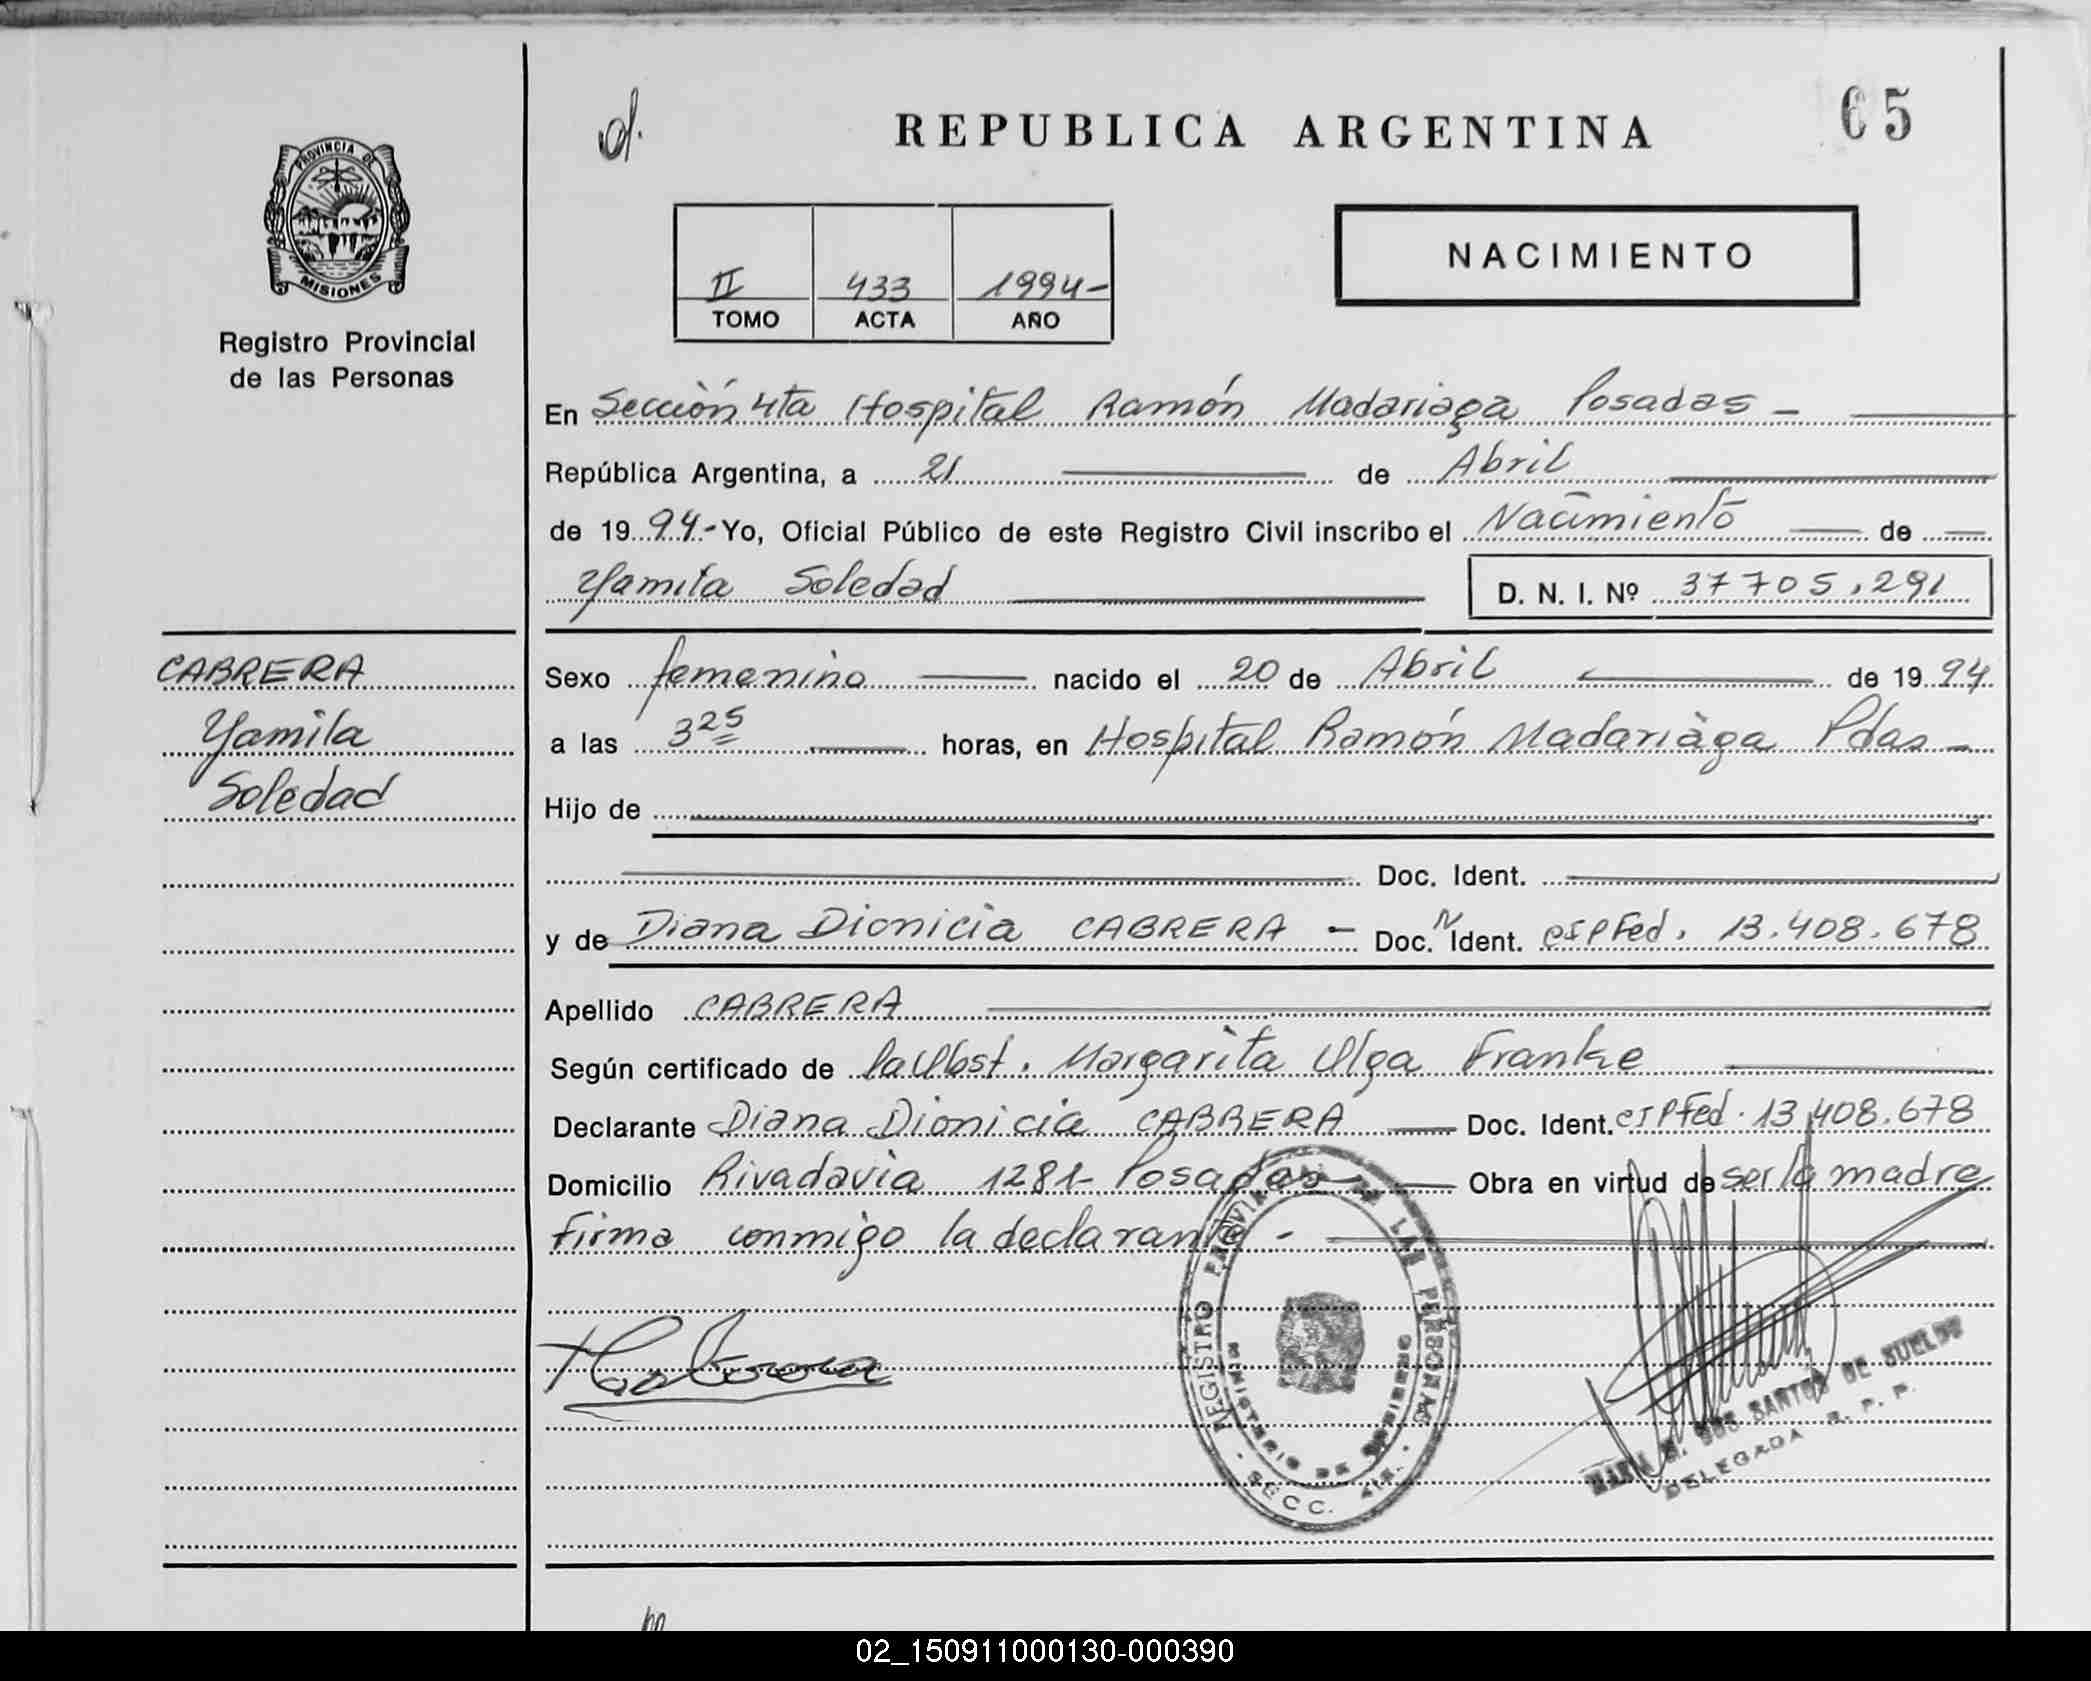 d.
REPUBLICA ARGENTINA
65
PROVINCIA DE
MISIONES
Registro Provincial
de las Personas
II 433 1994-
TOMO ACTA AÑO
NACIMIENTO
En Sección 4ta Hospital Ramón Madariaga Posadas -
República Argentina, a 21 de Abril
de 1994.- Yo, Oficial Público de este Registro Civil inscribo el Nacimiento de
Yamila Soledad
D. N. I. Nº 37705.291
CABRERA
Yamila
Soledad
Sexo femenino nacido el 20 de Abril de 1994.
a las 3 25 horas, en Hospital Ramón Madariaga Pdas -
Hijo de
Doc. Ident.
y de Diana Dionicia CABRERA - Doc. N Ident. CIPFed. 13.408.678
Apellido CABRERA
Según certificado de la Obst. Margarita Olga Franke
Declarante Diana Dionicia CABRERA Doc. Ident. CIPFed. 13.408.678
Domicilio Rivadavia 1281- Posadas Obra en virtud de ser la madre
firma conmigo la declarante -
REGISTRO PROVINCIAL DE LAS PERSONAS
MINISTERIO DE GOBIERNO
SECC. 4ta.
MARIA DOS SANTOS DE SUELDO
DELEGADA R. P. P.
02_150911000130-000390